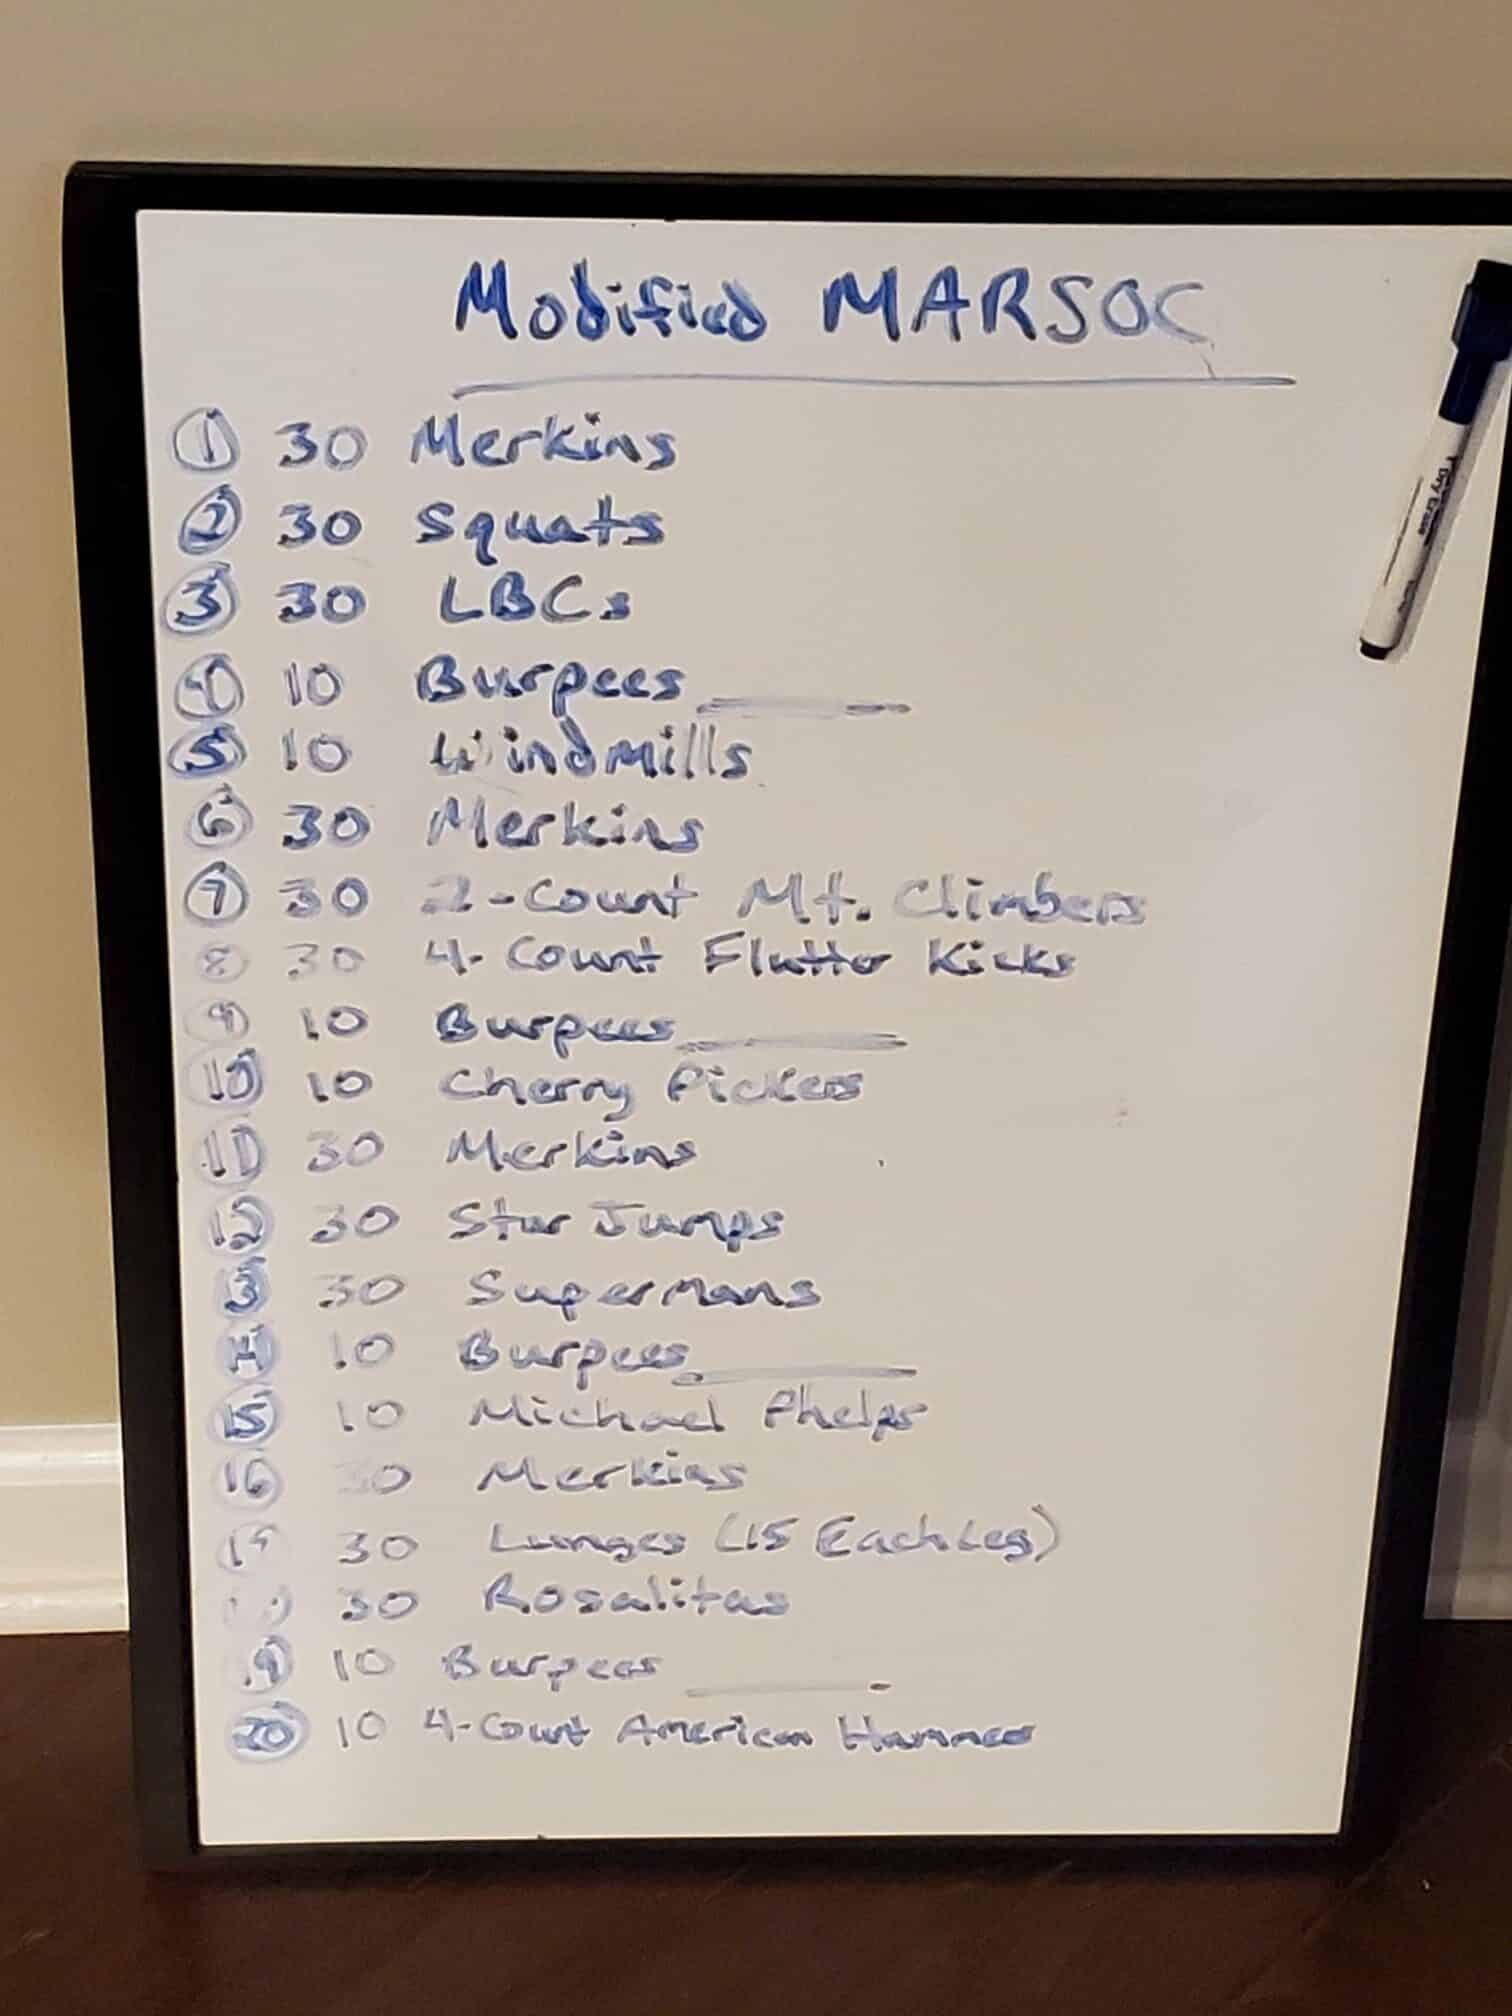 Modified MARSOC
1 30 Merkins
2 30 Squats
3 30 LBCs
4 10 Burpees
5 10 Windmills
6 30 Merkins
7 30 2-Count Mt. Climbers
8 30 4-Count Flutter Kicks
9 10 Burpees
10 10 Cherry Pickers
11 30 Merkins
12 30 Star Jumps
13 30 Supermans
14 10 Burpees
15 10 Michael Phelps
16 30 Merkins
17 30 Lunges (15 Each Leg)
18 30 Rosalitas
19 10 Burpees
20 10 4-Count American Hammer
Dry Erase